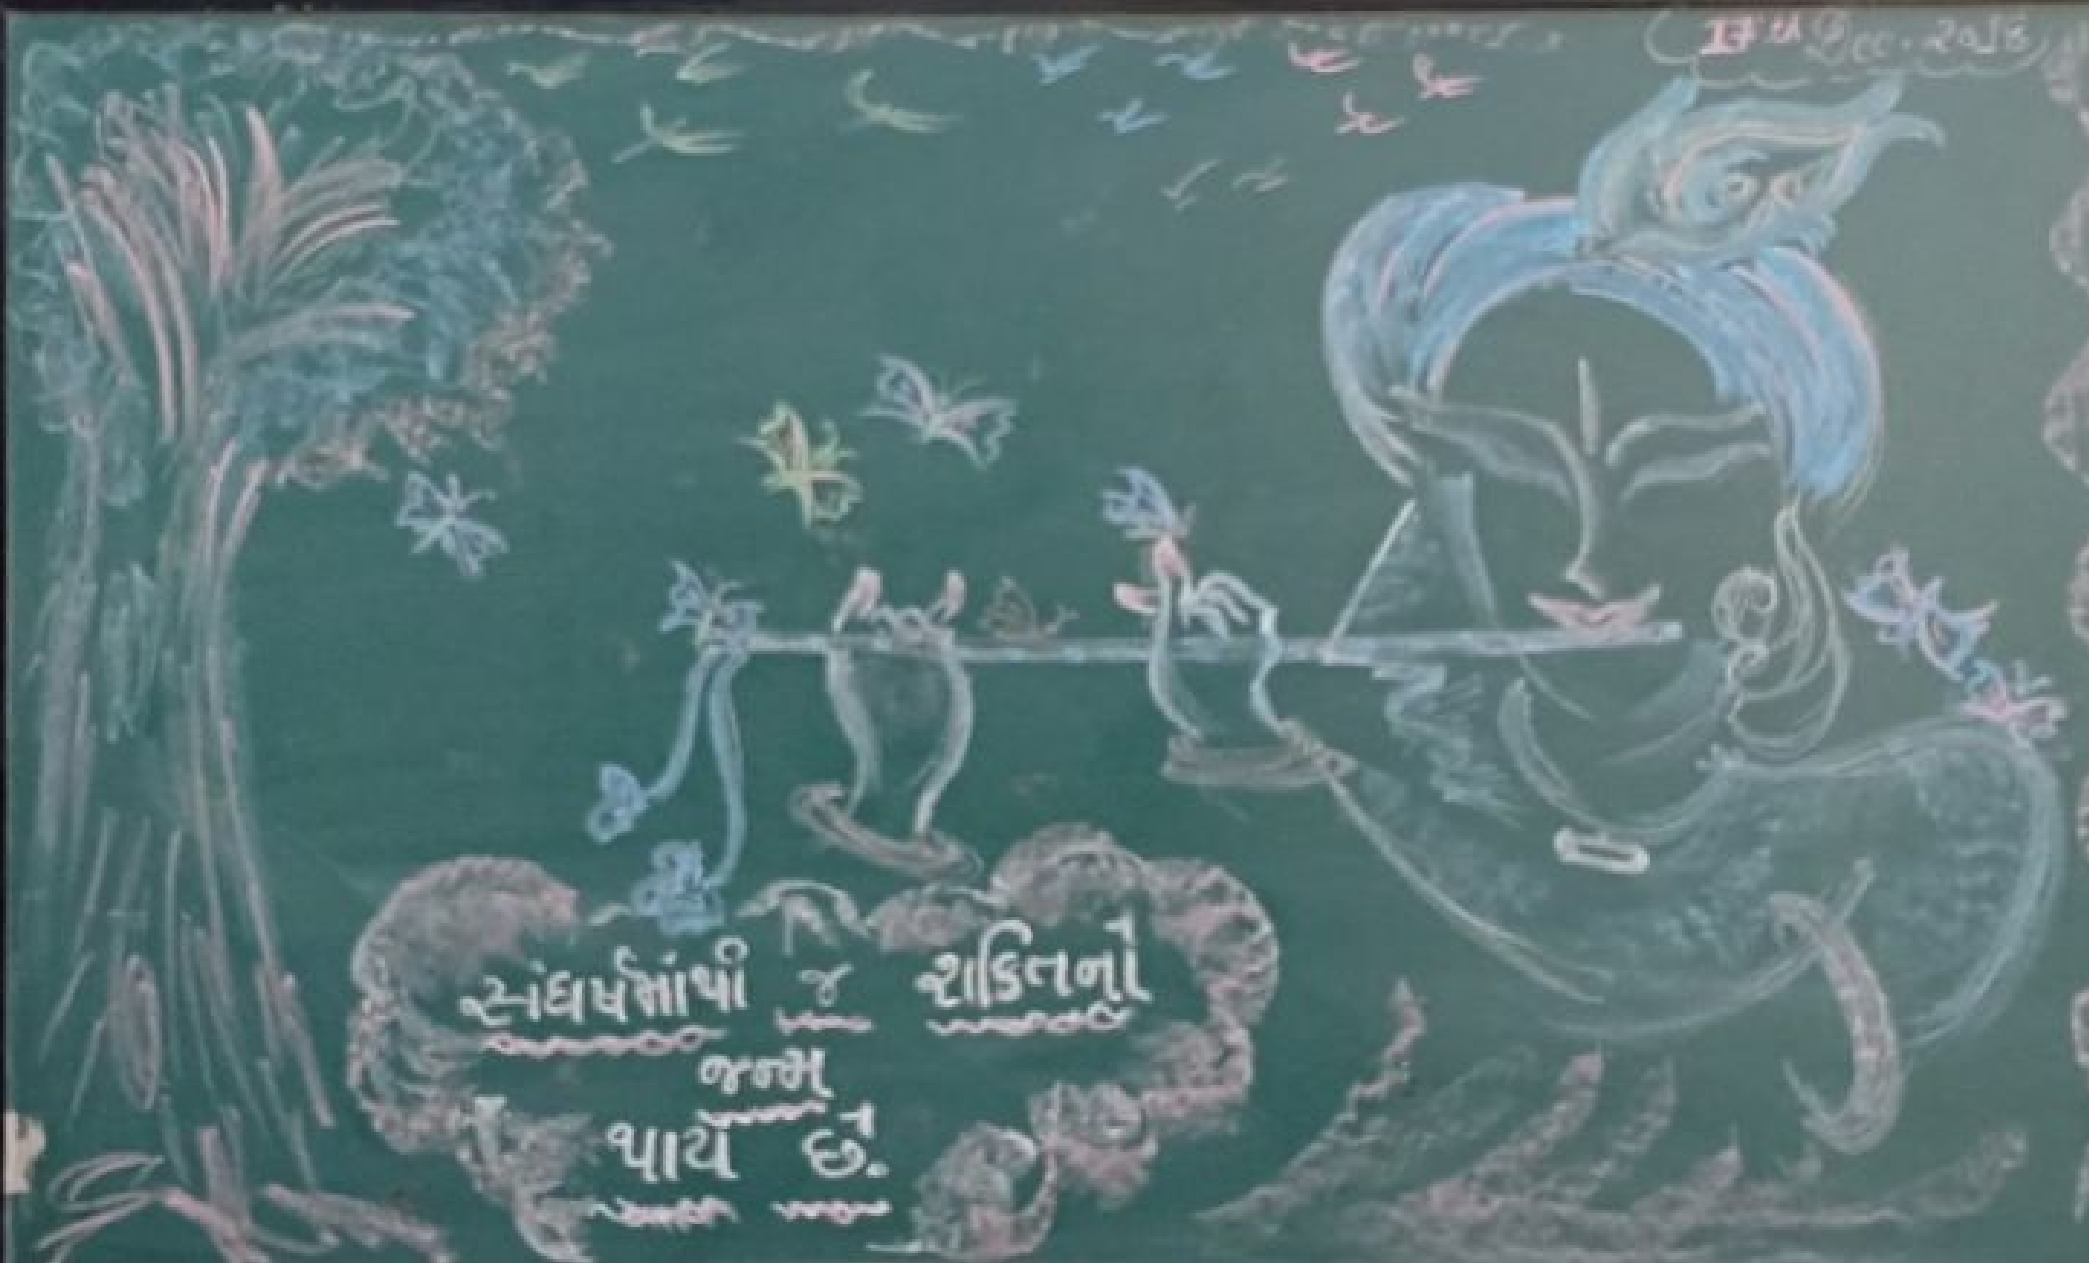 સંઘર્ષમાંથી જ શકિતનો
જન્મ
થાય છે.